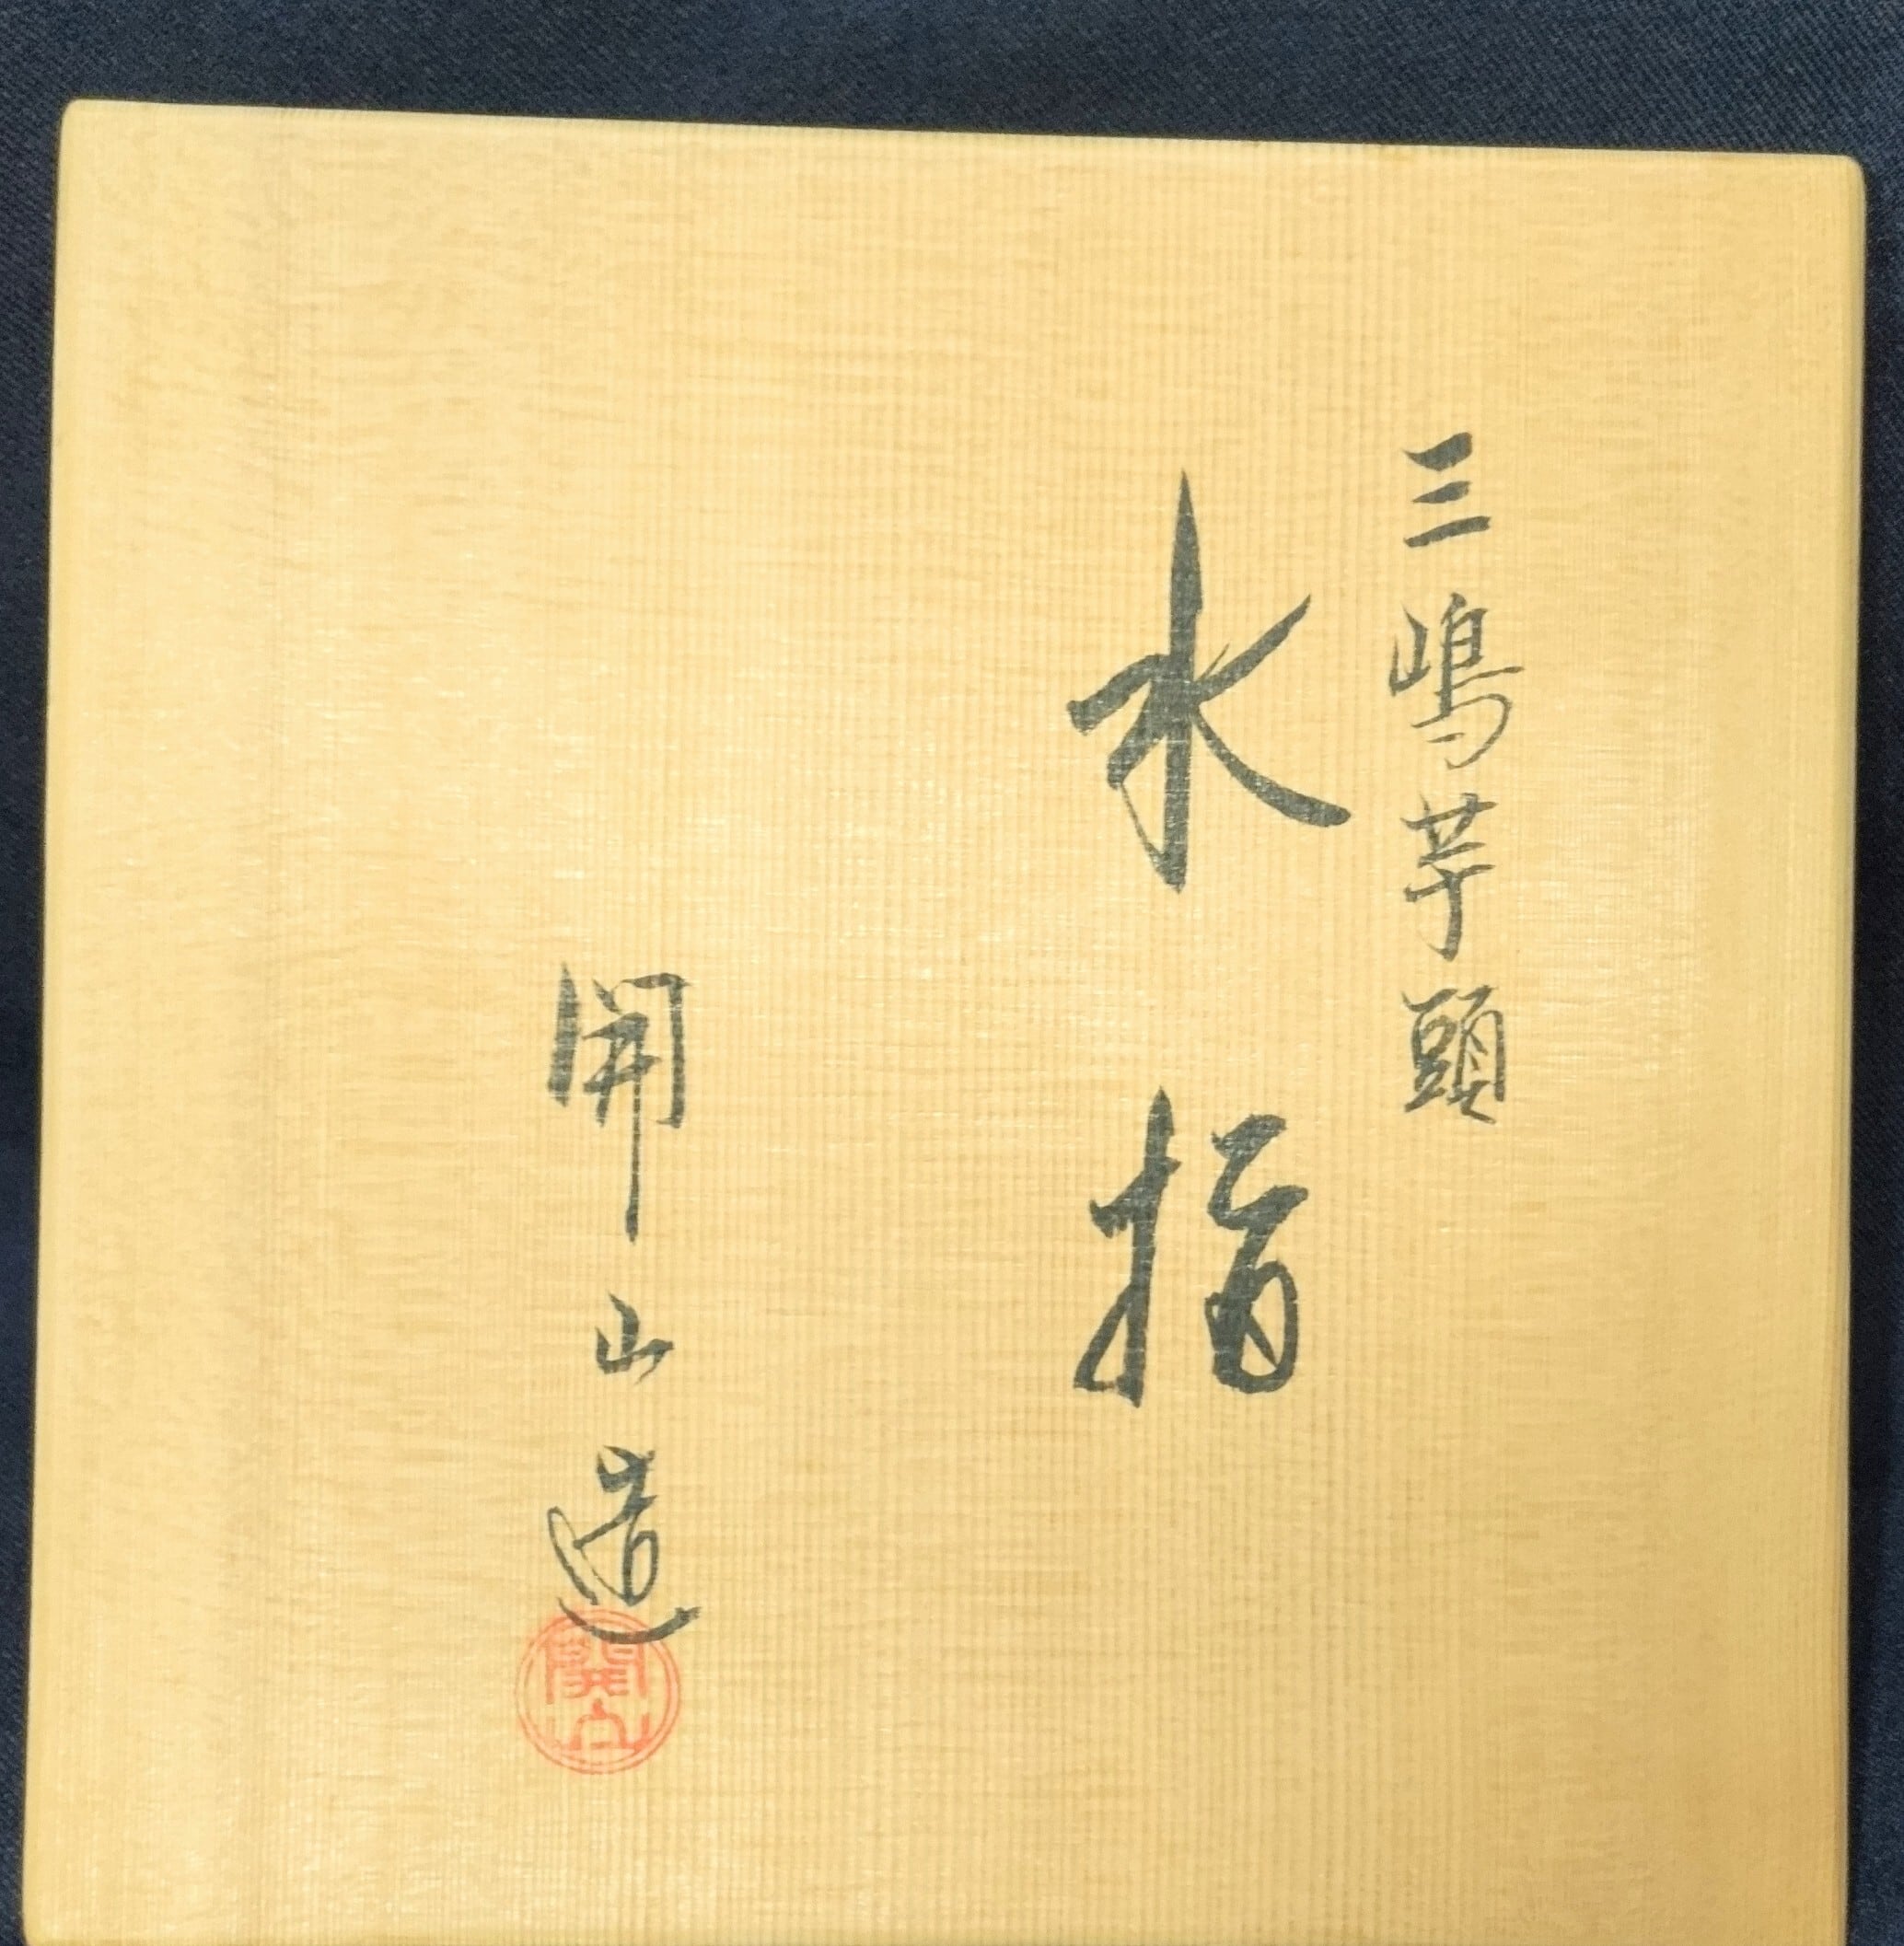 三嶋芋頭
水指
開山造
開山